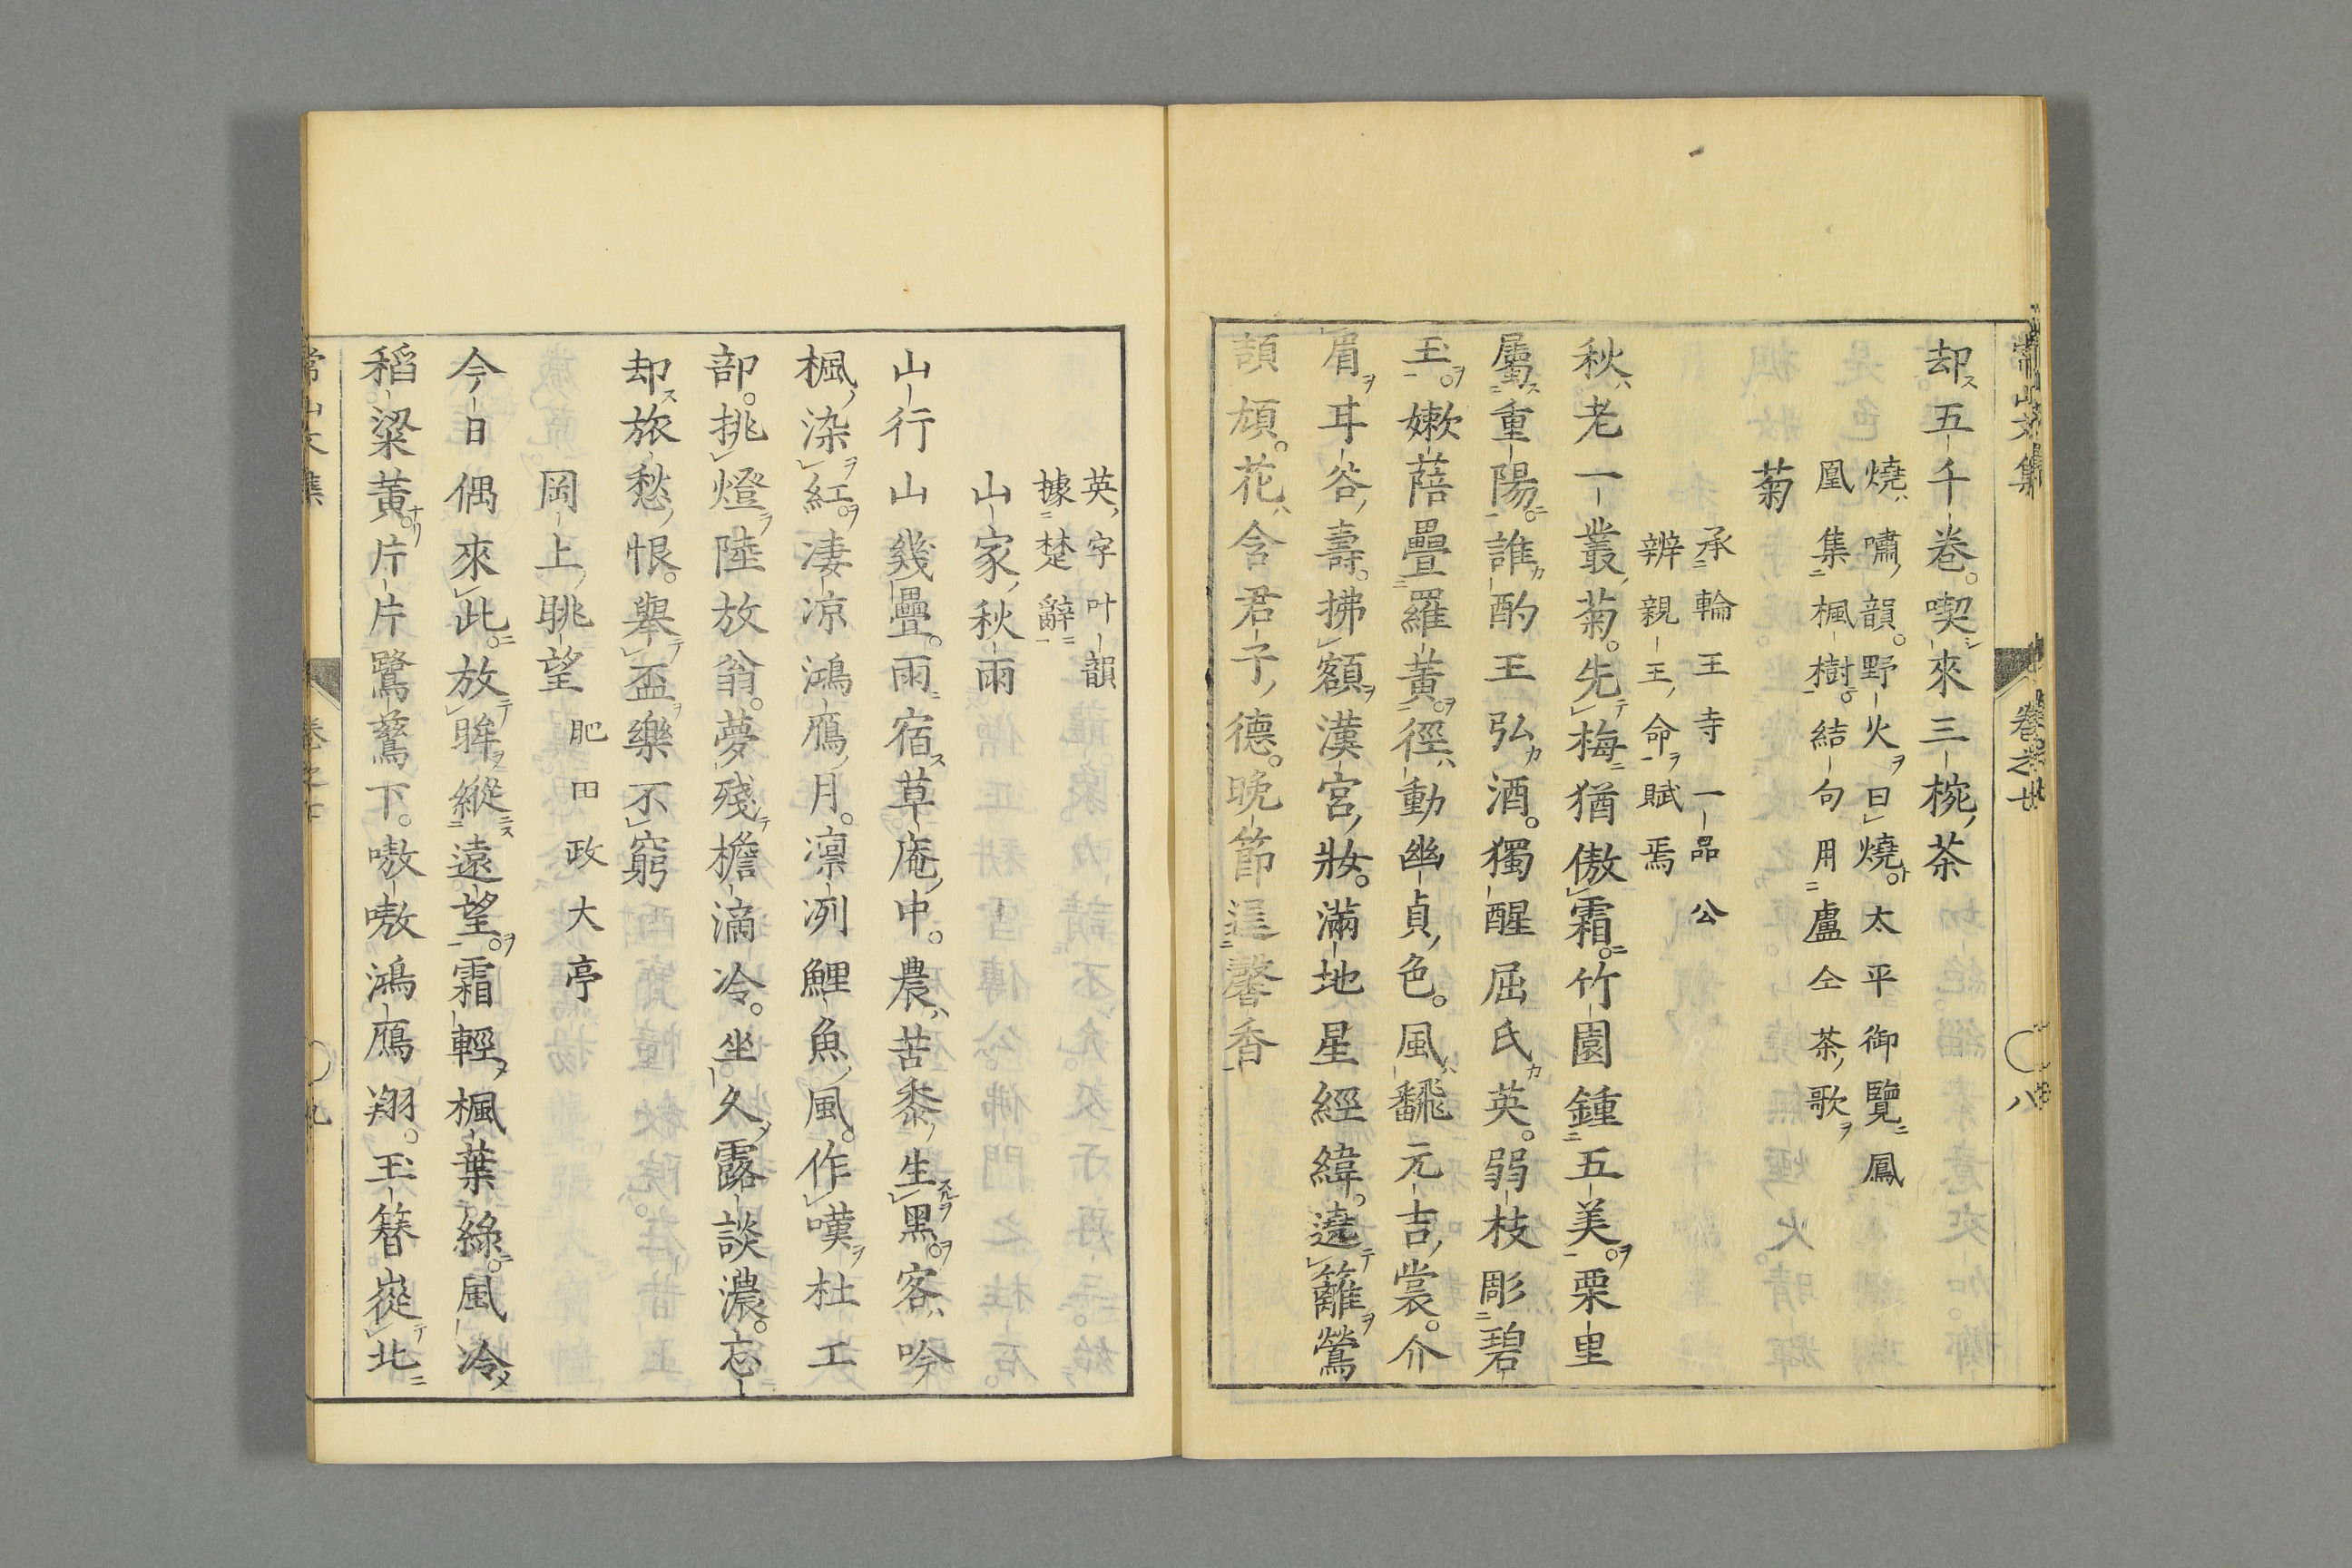 常山文集 卷之廿 〇 八
却五千卷。喫來三椀茶
燒嘯韻。野火日燒太平御覽鳳
凰集楓樹結句用盧仝茶歌
菊
承輪王寺一品公
辨親王命賦焉
秋老一叢菊。先梅猶傲霜。竹園鍾五美。栗里
屬重陽。誰酌王弘酒。獨醒屈氏英。弱枝彫碧
玉。嫰蓓疊羅黃。徑動幽貞色。風飜元吉裳。介
眉耳谷壽。拂額漢宮妝。滿地星經緯。遶籬鶯
頡頏。花含君子德。晚節逞馨香
英字叶韻
據楚辭
山家秋雨
山行山幾疊。雨宿草庵中。農苦黍生黑。客吟
楓染紅。凄凉鴻鴈月。凛冽鯉魚風。作嘆杜工
部。挑燈陸放翁。夢殘檐滴冷。坐久露談濃。忘
却旅愁恨。舉盃樂不窮
岡上眺望 肥田政大亭
今日偶來此。放眸縱遠望。霜輕楓葉綠。風冷
稻粱黃。片片鷺鶿下。嗷嗷鴻鴈翔。玉簪嵸北
常山文集 卷之廿 〇 九